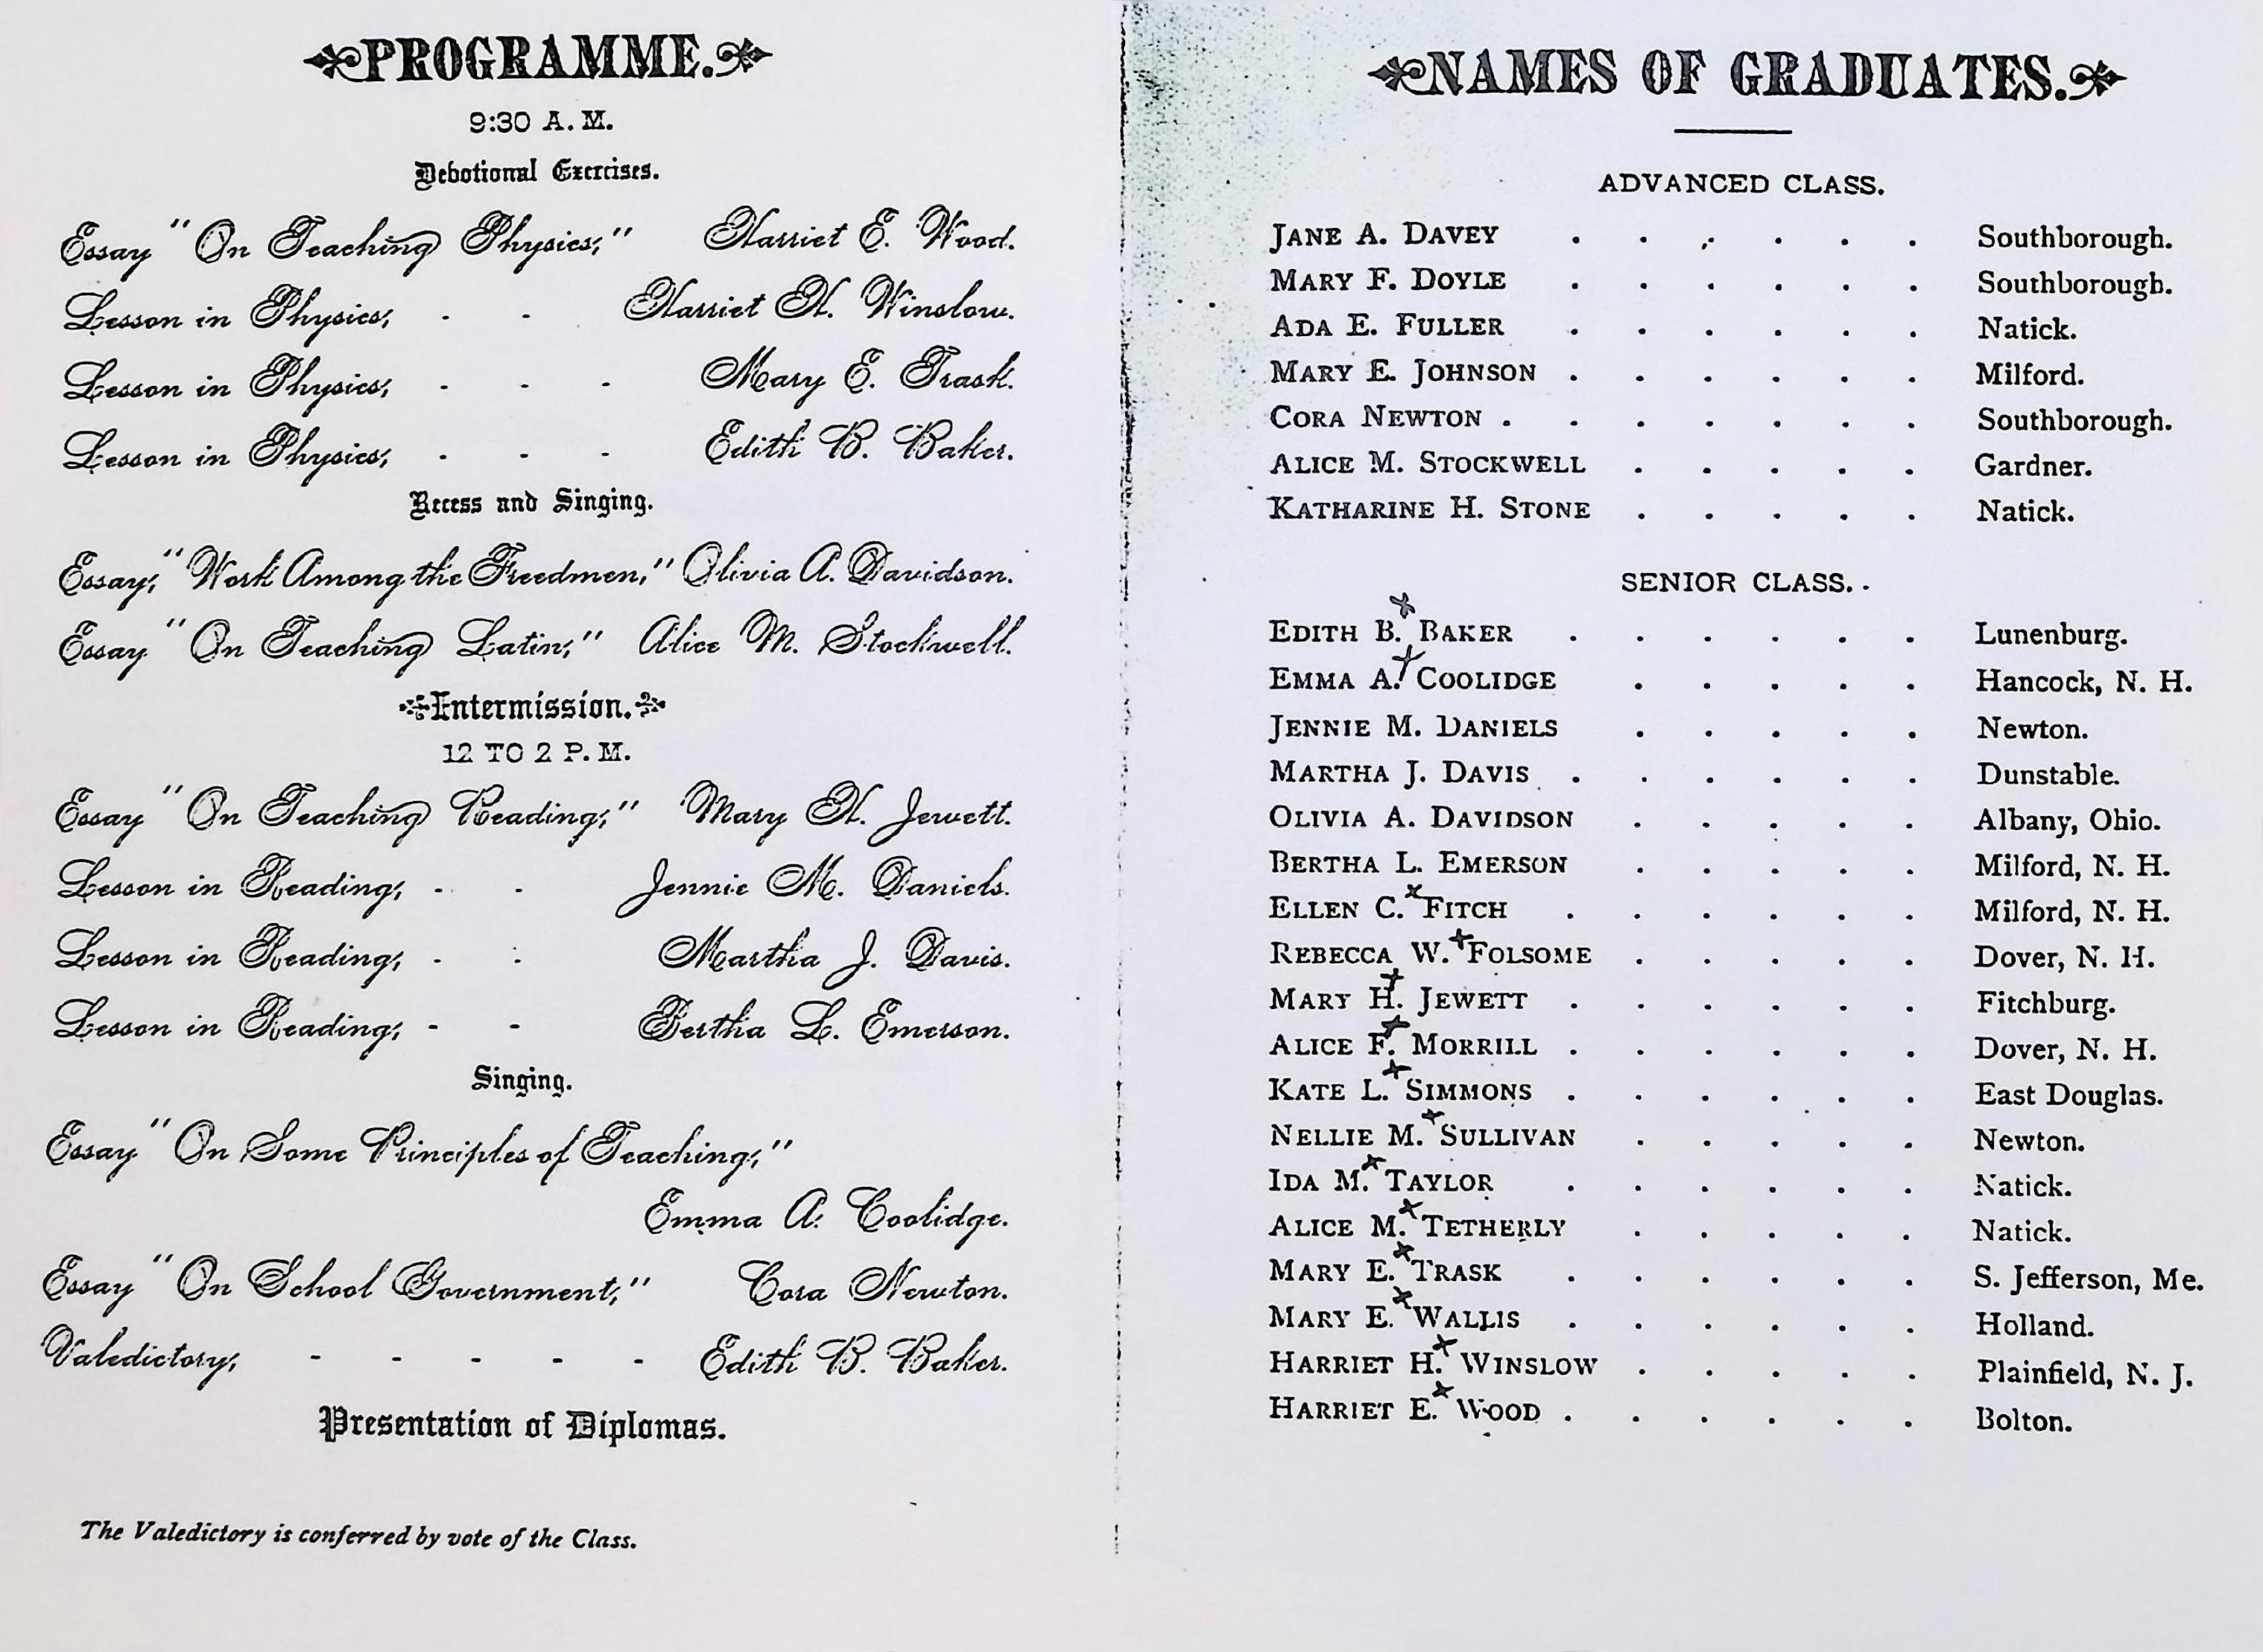 PROGRAMME.
9:30 A. M.
Devotional Exercises.
Essay "On Teaching Physics," Harriet E. Wood.
Lesson in Physics, - - Harriet H. Winslow.
Lesson in Physics, - - - Mary E. Trask.
Lesson in Physics, - - - Edith B. Baker.
Recess and Singing.
Essay, "Work Among the Freedmen," Olivia A. Davidson.
Essay "On Teaching Latin," Alice M. Stockwell.
Intermission.
12 TO 2 P. M.
Essay "On Teaching Reading," Mary H. Jewett.
Lesson in Reading, - - Jennie M. Daniels.
Lesson in Reading, - - Martha J. Davis.
Lesson in Reading, - - Bertha L. Emerson.
Singing.
Essay "On Some Principles of Teaching,"
Emma A. Coolidge.
Essay "On School Government," Cora Newton.
Valedictory, - - - - - Edith B. Baker.
Presentation of Diplomas.
The Valedictory is conferred by vote of the Class.
NAMES OF GRADUATES.
ADVANCED CLASS.
JANE A. DAVEY . . . . . . Southborough.
MARY F. DOYLE . . . . . . Southborough.
ADA E. FULLER . . . . . . Natick.
MARY E. JOHNSON . . . . . . Milford.
CORA NEWTON . . . . . . . Southborough.
ALICE M. STOCKWELL . . . . . Gardner.
KATHARINE H. STONE . . . . . Natick.
SENIOR CLASS.
EDITH B. BAKER . . . . . . Lunenburg.
EMMA A. COOLIDGE . . . . . Hancock, N. H.
JENNIE M. DANIELS . . . . . Newton.
MARTHA J. DAVIS . . . . . . Dunstable.
OLIVIA A. DAVIDSON . . . . . Albany, Ohio.
BERTHA L. EMERSON . . . . . Milford, N. H.
ELLEN C. FITCH . . . . . . Milford, N. H.
REBECCA W. FOLSOME . . . . . Dover, N. H.
MARY H. JEWETT . . . . . . Fitchburg.
ALICE F. MORRILL . . . . . . Dover, N. H.
KATE L. SIMMONS . . . . . . East Douglas.
NELLIE M. SULLIVAN . . . . . Newton.
IDA M. TAYLOR . . . . . . Natick.
ALICE M. TETHERLY . . . . . Natick.
MARY E. TRASK . . . . . . S. Jefferson, Me.
MARY E. WALLIS . . . . . . Holland.
HARRIET H. WINSLOW . . . . . Plainfield, N. J.
HARRIET E. WOOD . . . . . . Bolton.